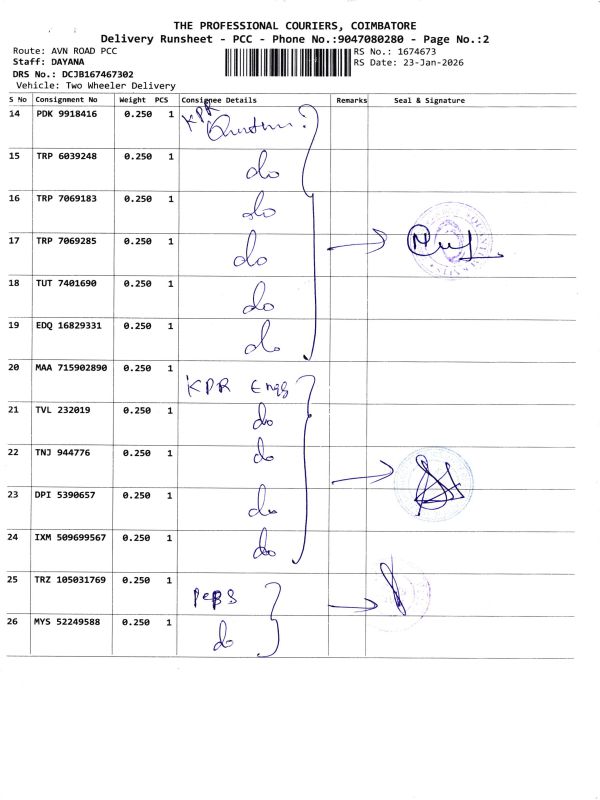 THE PROFESSIONAL COURIERS, COIMBATORE
Delivery Runsheet - PCC - Phone No.:9047080280 - Page No.:2
Route: AVN ROAD PCC RS No.: 1674673
Staff: DAYANA RS Date: 23-Jan-2026
DRS No.: DCJB167467302
Vehicle: Two Wheeler Delivery
S No Consignment No Weight PCS Consignee Details Remarks Seal & Signature
14 PDK 9918416 0.250 1 KPR
15 TRP 6039248 0.250 1 do
16 TRP 7069183 0.250 1 do
17 TRP 7069285 0.250 1 do
18 TUT 7401690 0.250 1 do
19 EDQ 16829331 0.250 1 do
20 MAA 715902890 0.250 1 KPR Engg
21 TVL 232019 0.250 1 do
22 TNJ 944776 0.250 1 do
23 DPI 5390657 0.250 1 do
24 IXM 509699567 0.250 1 do
25 TRZ 105031769 0.250 1 PEPS
26 MYS 52249588 0.250 1 do